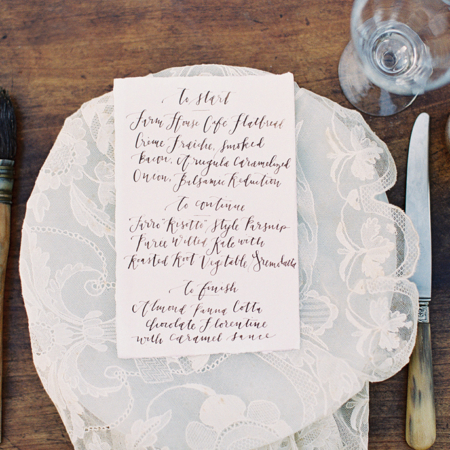 to start
Farm House Cafe Flatbread
Créme Fraiche, Smoked
Bacon, Arugula Caramelized
Onion, Balsamic Reduction
to continue
"Farro "Risotto" Style Parsnip
Puree Wilted Kale with
Roasted Root Vegetable Gremolata
to finish
Almond Panna Cotta
Chocolate Florentine
with Caramel Sauce